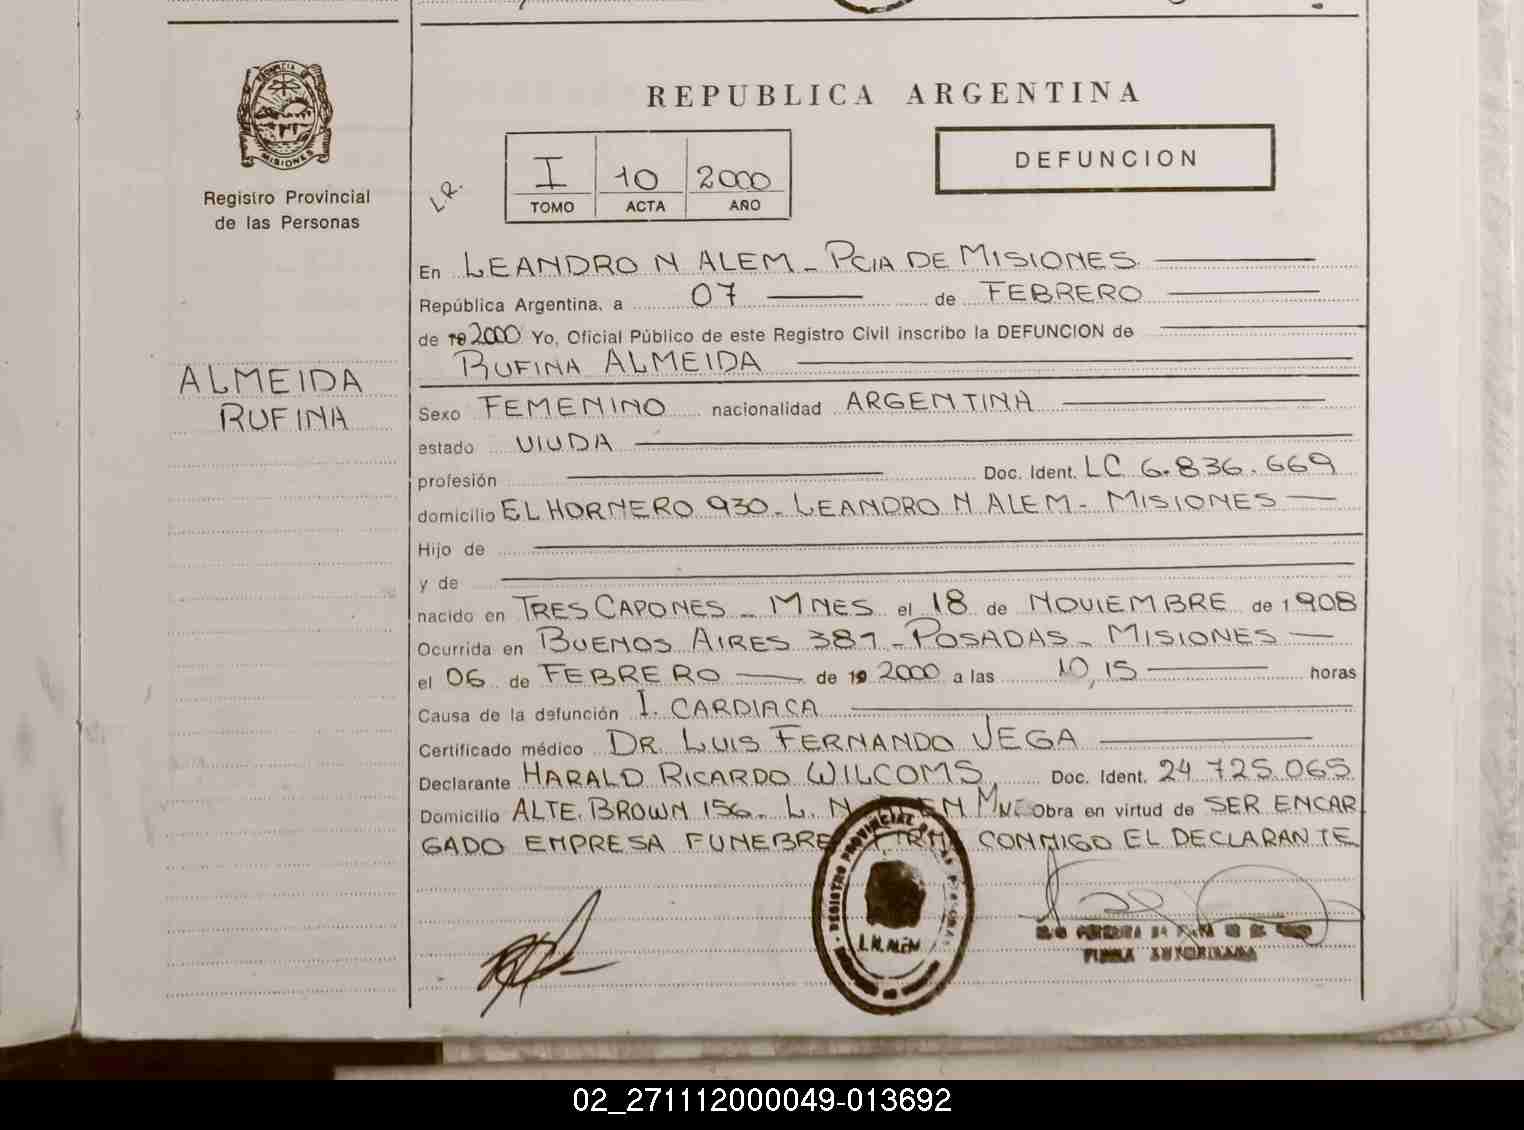 PROVINCIA DE
MISIONES
Registro Provincial
de las Personas
REPUBLICA ARGENTINA
DEFUNCION
L.R.
I 10 2000
TOMO ACTA AÑO
En LEANDRO N ALEM - PCIA DE MISIONES
República Argentina, a 07 de FEBRERO
de 19 2000 Yo, Oficial Público de este Registro Civil inscribo la DEFUNCION de
RUFINA ALMEIDA
ALMEIDA
RUFINA
Sexo FEMENINO nacionalidad ARGENTINA
estado VIUDA
profesión Doc. Ident. LC 6.836.669
domicilio EL HORNERO 930 - LEANDRO N ALEM - MISIONES
Hijo de
y de
nacido en TRES CAPONES - MNES el 18 de NOVIEMBRE de 1908
Ocurrida en BUENOS AIRES 381 - POSADAS - MISIONES
el 06 de FEBRERO de 19 2000 a las 10,15 horas
Causa de la defunción I. CARDIACA
Certificado médico DR. LUIS FERNANDO VEGA
Declarante HARALD RICARDO WILCOMS Doc. Ident. 24 725.065
Domicilio ALTE. BROWN 156 - L. N ALEM MNES Obra en virtud de SER ENCAR
GADO EMPRESA FUNEBRE FIRMA CONMIGO EL DECLARANTE
REGISTRO PROVINCIAL DE LAS PERSONAS
L.N. ALEM
FIRMA AUTORIZADA
02_271112000049-013692